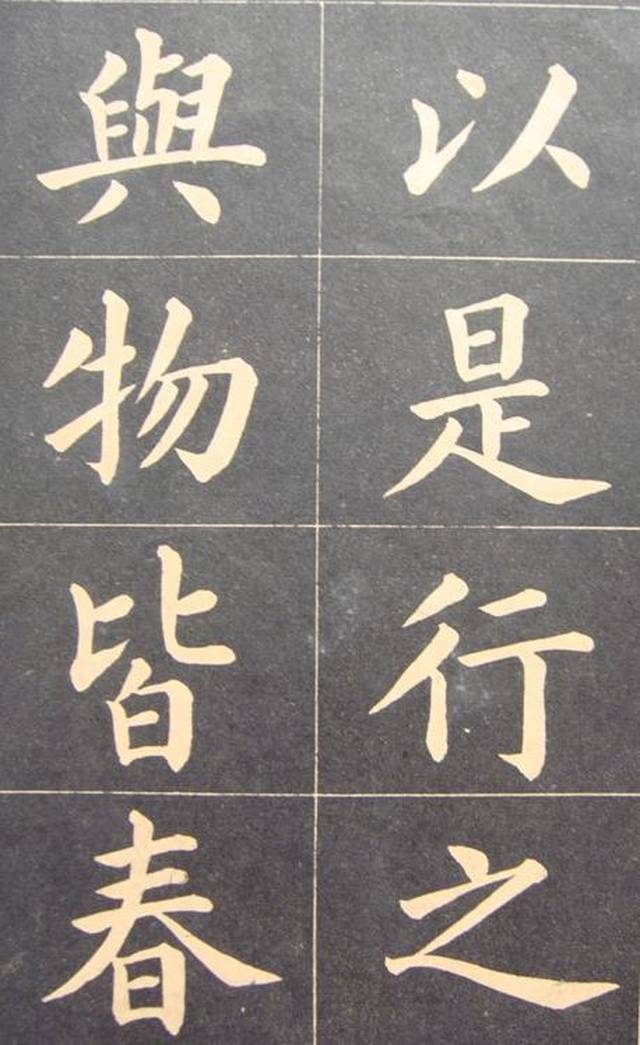 以是行之
與物皆春